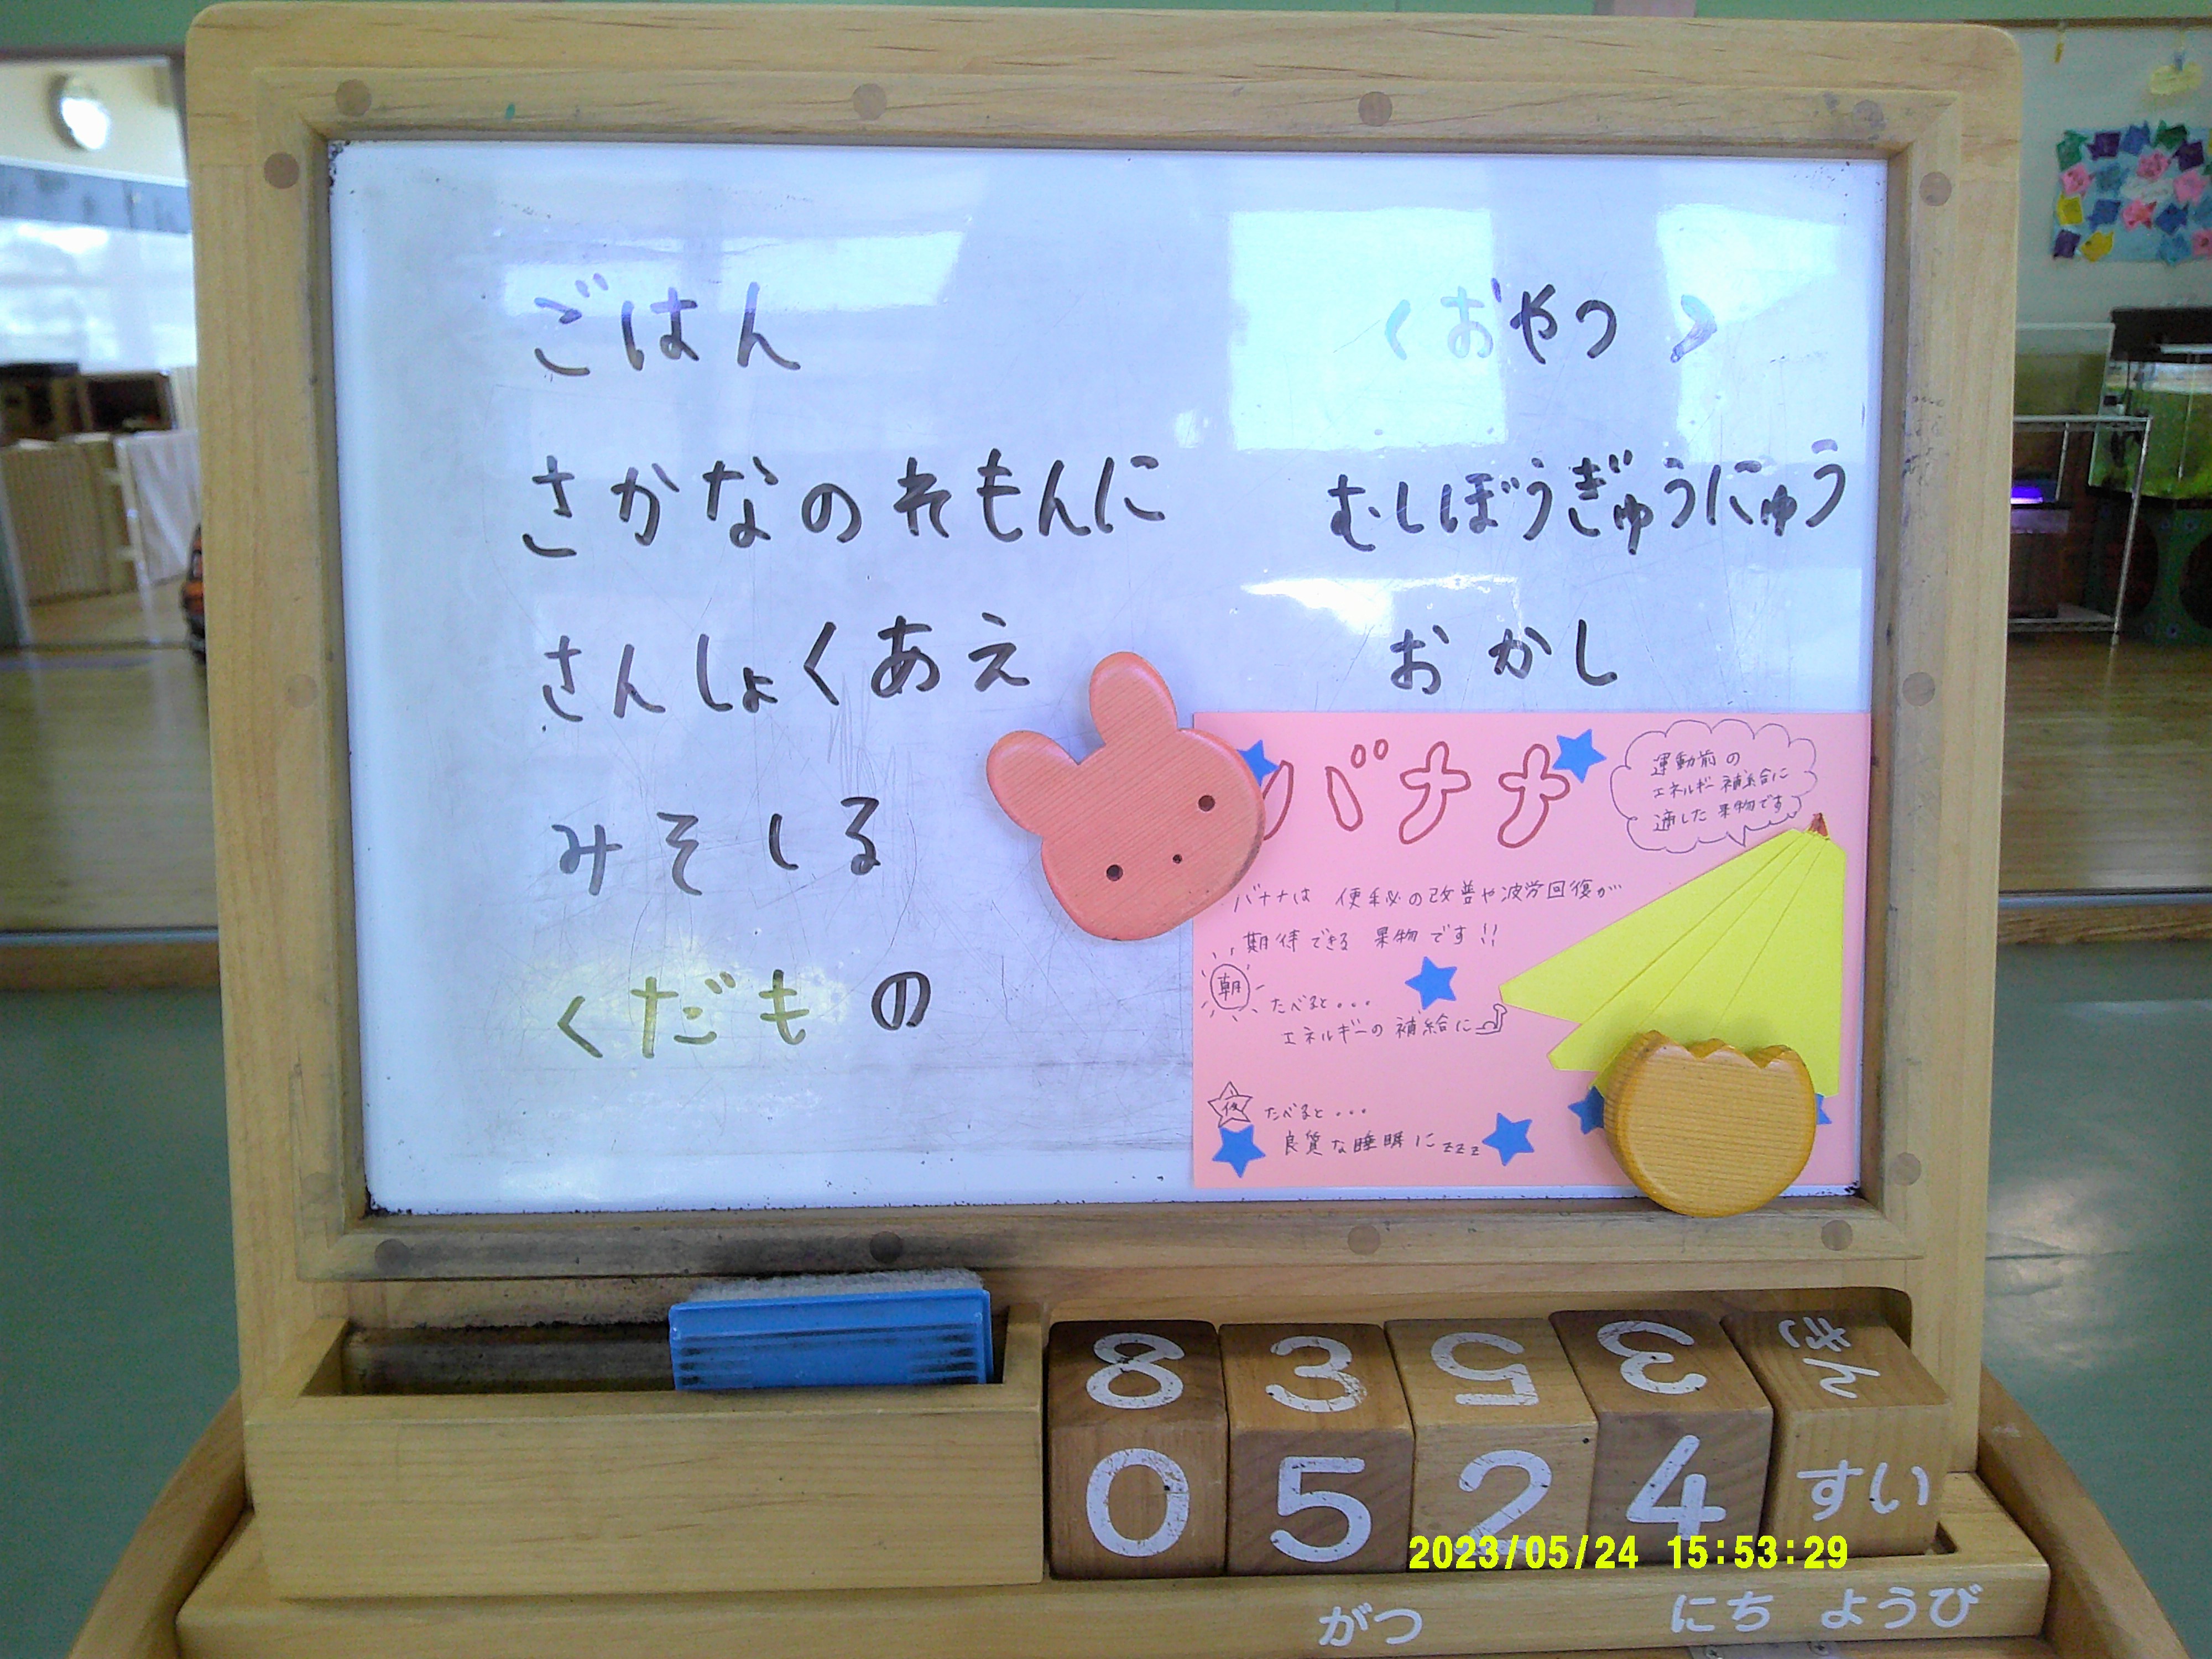 ごはん
さかなのれもんに
さんしょくあえ
みそしる
くだもの
<おやつ>
むしぼうぎゅうにゅう
おかし
バナナ
運動前の
エネルギー補給に
適した果物です
バナナは 便秘の改善や疲労回復が
期待できる 果物です!!
朝 たべると...
エネルギーの補給に
夜 たべると...
良質な睡眠にzzz
8 3 5 3 きん
0 5 2 4 すい
2023/05/24 15:53:29
がつ にち ようび